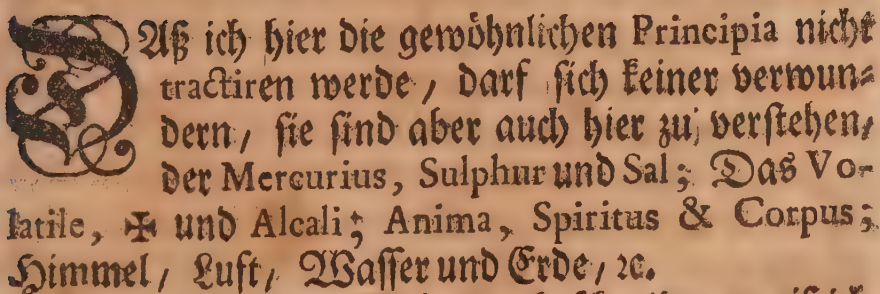 DAß ich hier die gewöhnlichen Principia nicht
tractiren werde / darf sich keiner verwun=
dern / sie sind aber auch hier zu verstehen /
der Mercurius, Sulphur und Sal; Das Vo-
latile, ✠ und Alcali; Anima, Spiritus & Corpus;
Himmel / Luft / Wasser und Erde / ꝛc.